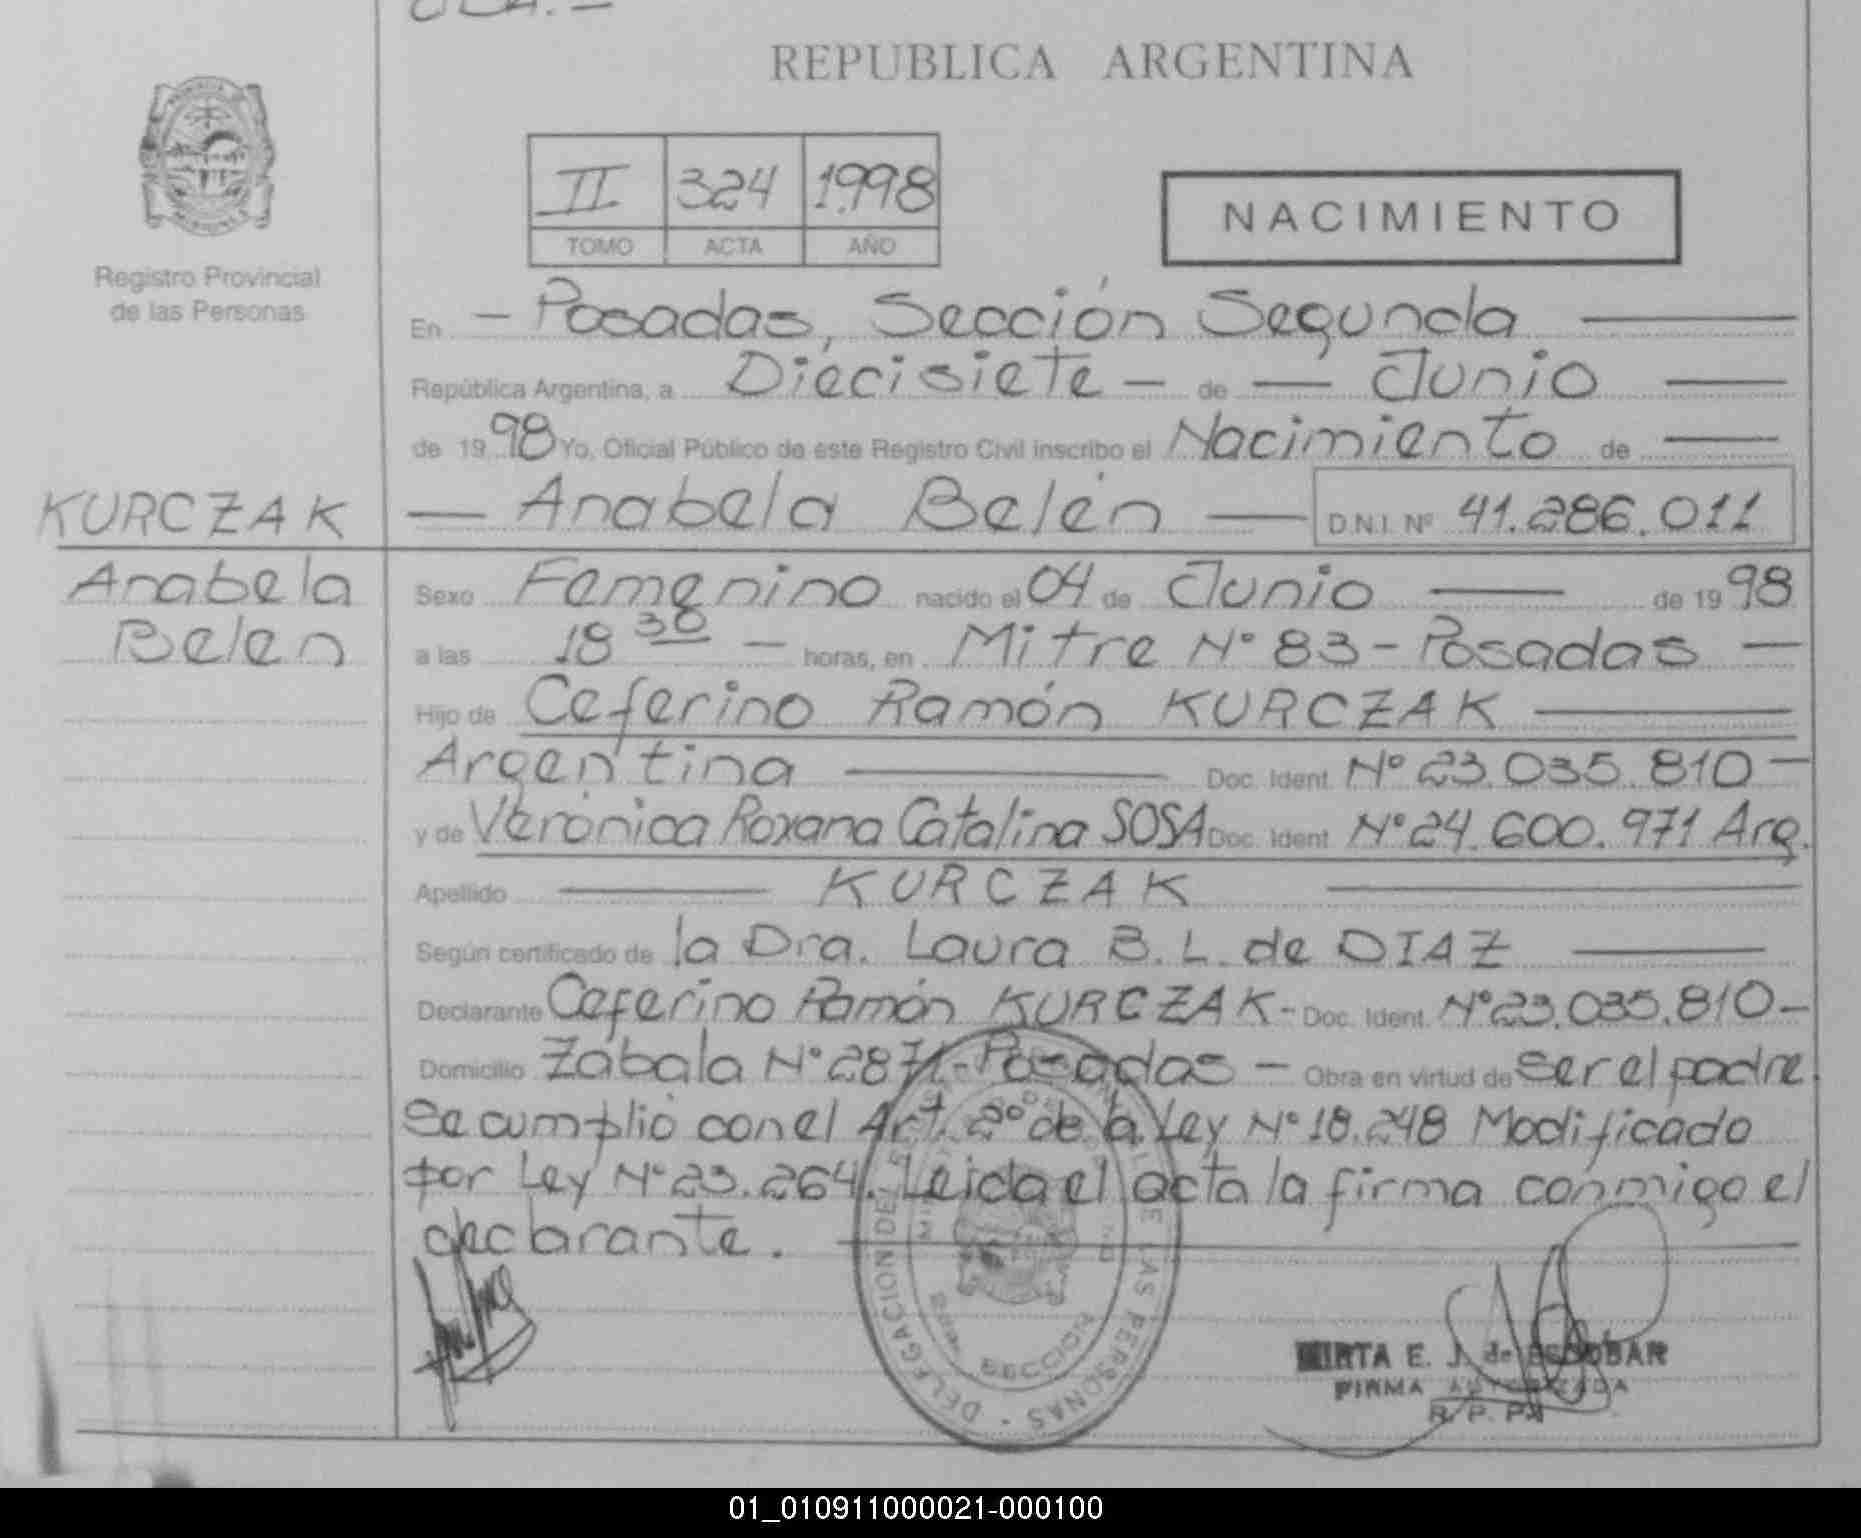 REPUBLICA ARGENTINA
II 324 1998
TOMO ACTA AÑO
NACIMIENTO
Registro Provincial
de las Personas
En - Posadas, Sección Segunda
República Argentina, a Diecisiete - de - Junio
de 1998 Yo, Oficial Público de este Registro Civil inscribo el Nacimiento de
KURCZAK
Anabela
Belen
Anabela Belén D.N.I. Nº 41.286.011
Sexo Femenino nacido el 04 de Junio de 1998
a las 18 30 - horas, en Mitre Nº 83 - Posadas -
Hijo de Ceferino Ramón KURCZAK
Argentina Doc. Ident. Nº 23.035.810 -
y de Verónica Roxana Catalina SOSA Doc. Ident. Nº 24.600.971 Arg.
Apellido KURCZAK
Según certificado de la Dra. Laura B. L. de DIAZ
Declarante Ceferino Ramón KURCZAK - Doc. Ident. Nº 23.035.810 -
Domicilio Zabala Nº 2871 - Posadas - Obra en virtud de ser el padre.
Se cumplió con el Art. 2º de la Ley Nº 18.248 Modificado
por Ley Nº 23.264. Leida el acta la firma conmigo el
declarante.
DELEGACION DE LAS PERSONAS
SECCION
MIRTA E. J. de ESCOBAR
FIRMA AUTORIZADA
R. P. P.
01_010911000021-000100